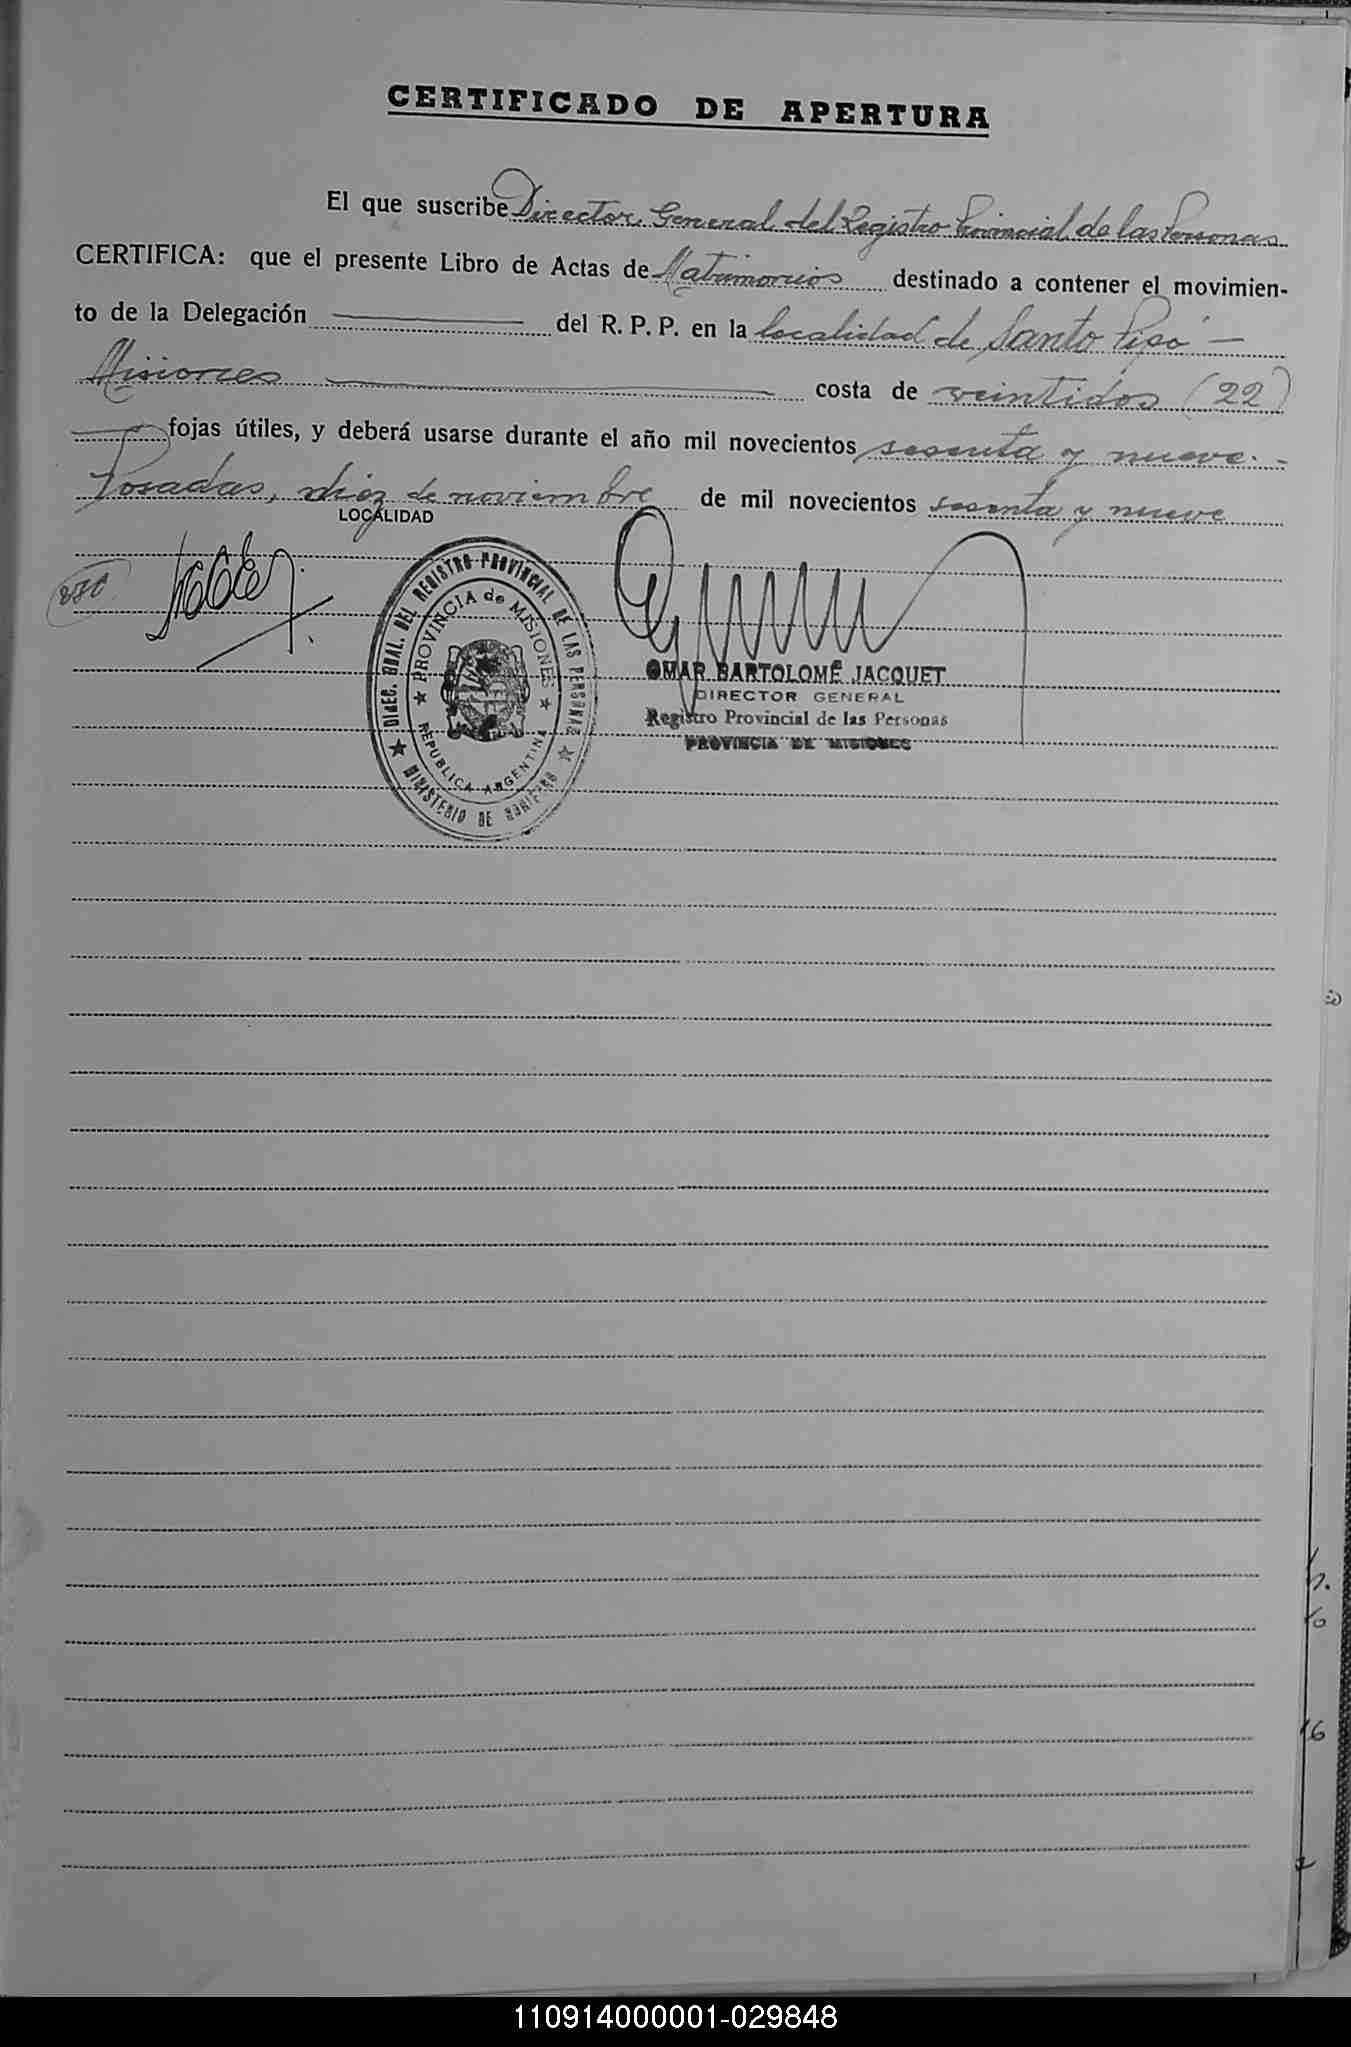 CERTIFICADO DE APERTURA
El que suscribe Director General del Registro Provincial de las Personas
CERTIFICA: que el presente Libro de Actas de Matrimonios destinado a contener el movimien-
to de la Delegación del R. P. P. en la localidad de Santo Pipó -
Misiones costa de veintidos (22)
fojas útiles, y deberá usarse durante el año mil novecientos sesenta y nueve. -
Posadas, diez de noviembre de mil novecientos sesenta y nueve
LOCALIDAD
DIREC. GRAL. DEL REGISTRO PROVINCIAL DE LAS PERSONAS
PROVINCIA de MISIONES
REPUBLICA ARGENTINA
MINISTERIO DE GOBIERNO
OMAR BARTOLOMÉ JACQUET
DIRECTOR GENERAL
Registro Provincial de las Personas
PROVINCIA DE MISIONES
110914000001-029848